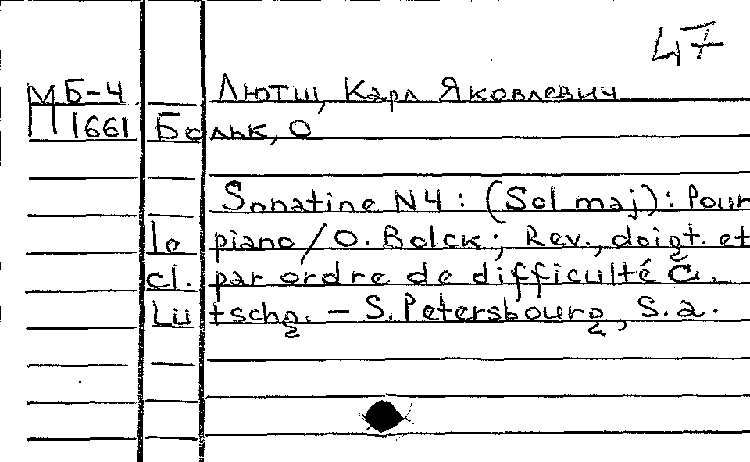 47
МБ-4 Лютш, Карл Яковлевич
П 1661 Больк, О
Sonatine N4: (Sol maj): Pour
le piano / O. Bolck; Rev., doigt. et
cl. par ordre de difficulté C.
Lütschg. – S. Petersbourg, S. a.